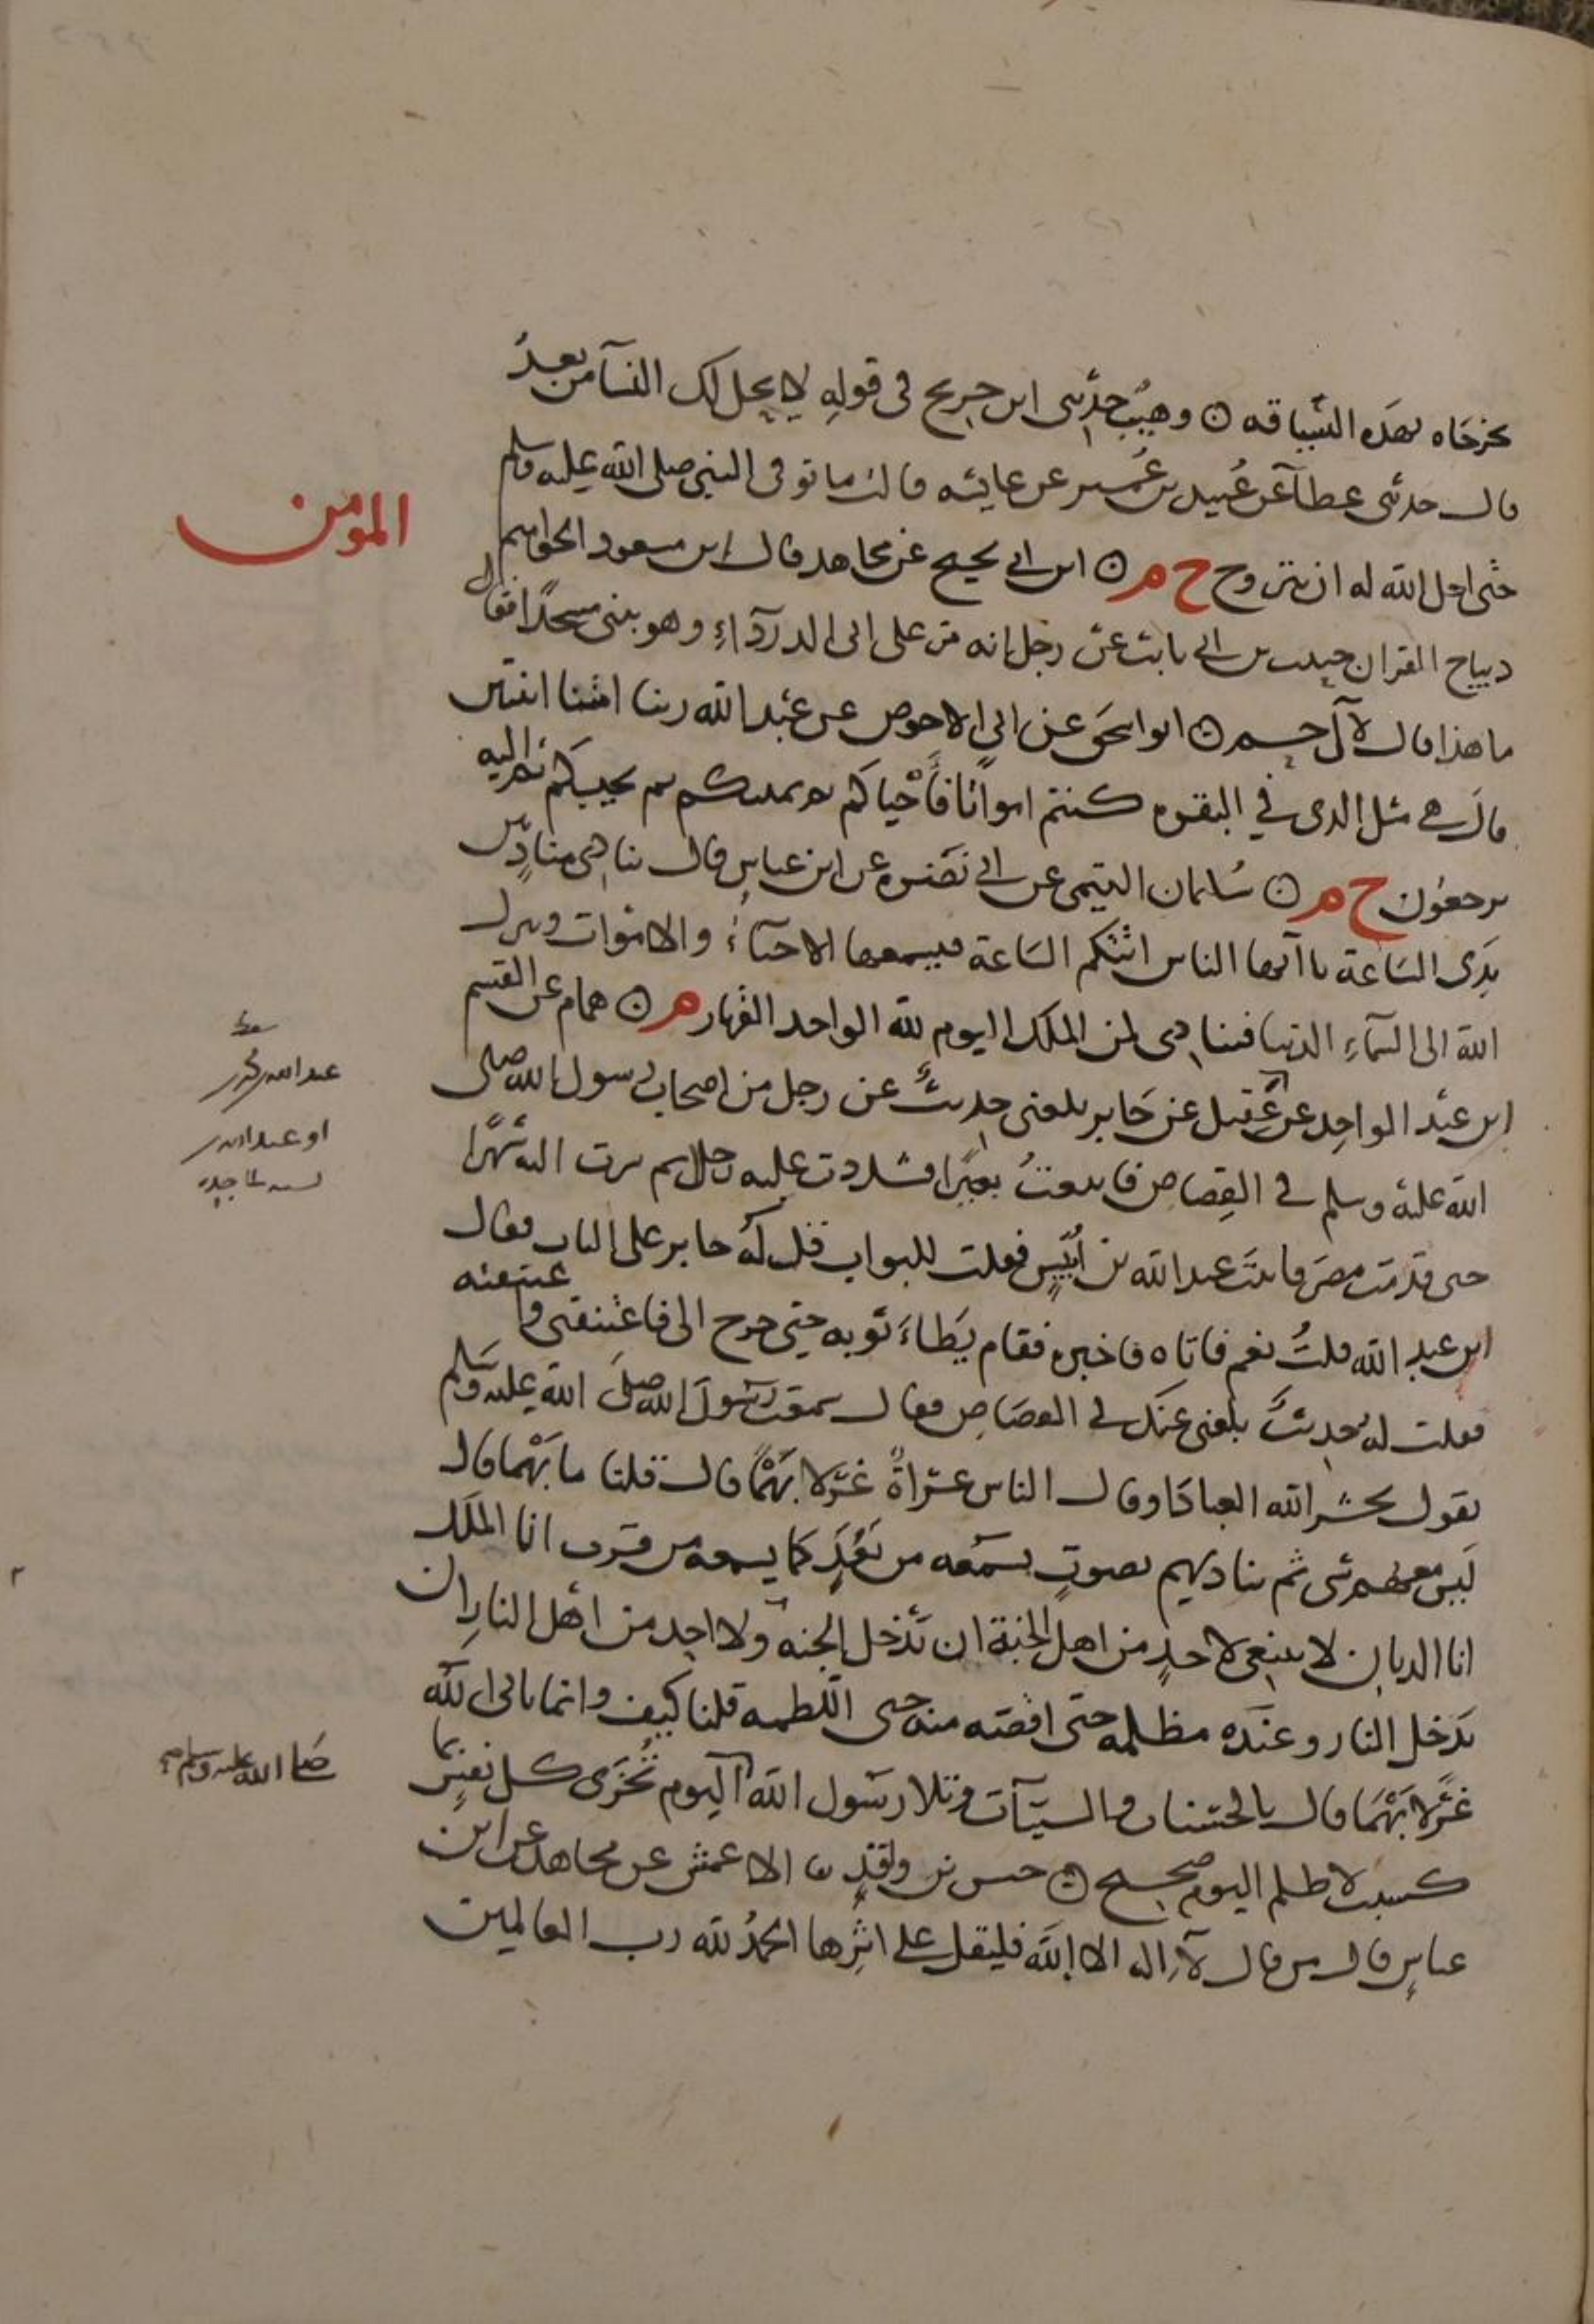 يخرجاه بهذه السياقه ۞ وهيب حدثنى ابن جريج فى قوله لا يحل لك النسآ من بعد
قال حدثنى عطآ عن عبيد بن عمير عن عايشه قالت ما توفى النبى صلى الله عليه وسلم
حتى احل الله له ان يتزوج ح م ۞ ابن ابى نجيح عن مجاهد قال ابن مسعود الحواميم
المومن
ديباج القران حبيب بن ابى ثابت عن رجل انه مر على ابى الدردآء وهو يبنى مسجدا فقال
ما هذا قال لآل حم ۞ ابو اسحق عن ابى الاحوص عن عبد الله ربنا امتنا اثنتين
قال هى مثل الذى في البقره كنتم امواتا فاحياكم ثم يميتكم ثم يحييكم ثم اليه
ترجعون ح م ۞ سليمان التيمى عن ابى نضره عن ابن عباس قال ينادى مناد بين
يدى الساعة يا آيها الناس اتتكم الساعة فيسمعها الاحيآء والاموات وينزل
الله الى السمآء الدنيا فينادى لمن الملك اليوم لله الواحد القهار م ۞ همام عن القسم
ابن عبد الواحد عن ابن عقيل عن جابر بلغنى حديث عن رجل من اصحاب رسول الله صلى
الله عليه وسلم في القصاص فابتعت بعيرا فشددت عليه رحلى ثم سرت اليه شهرا
حتى قدمت مصر فاتيت عبد الله بن انيس فقلت للبواب قل له جابر على الباب فقال
ابن عبد الله قلت نعم فاتاه فاخبره فقام يطاء ثوبه حتى خرج الى فاعتنقنى واعتنقته
فقلت له حديث بلغنى عنك في القصاص فقال سمعت رسول الله صلى الله عليه وسلم
يقول يحشر الله العباد او قال الناس عراة غرلا بهما قال قلنا ما بهما قال
ليس معهم شى ثم يناديهم بصوت يسمعه من بعد كما يسمعه من قرب انا الملك
انا الديان لا ينبغى لاحد من اهل الجنة ان يدخل الجنه ولا احد من اهل النار ان
يدخل النار وعنده مظلمه حتى اقصه منه حتى اللطمه قلنا كيف وانما ناتى الله
غرلا بهما قال بالحسنات والسيآت وتلا رسول الله اليوم تجزى كل نفس بما
صلى الله عليه وسلم
كسبت لا ظلم اليوم صحيح ۞ حسين بن واقد نا الاعمش عن مجاهد عن ابن
عباس قال من قال لآ اله الا الله فليقل على اثرها الحمد لله رب العالمين